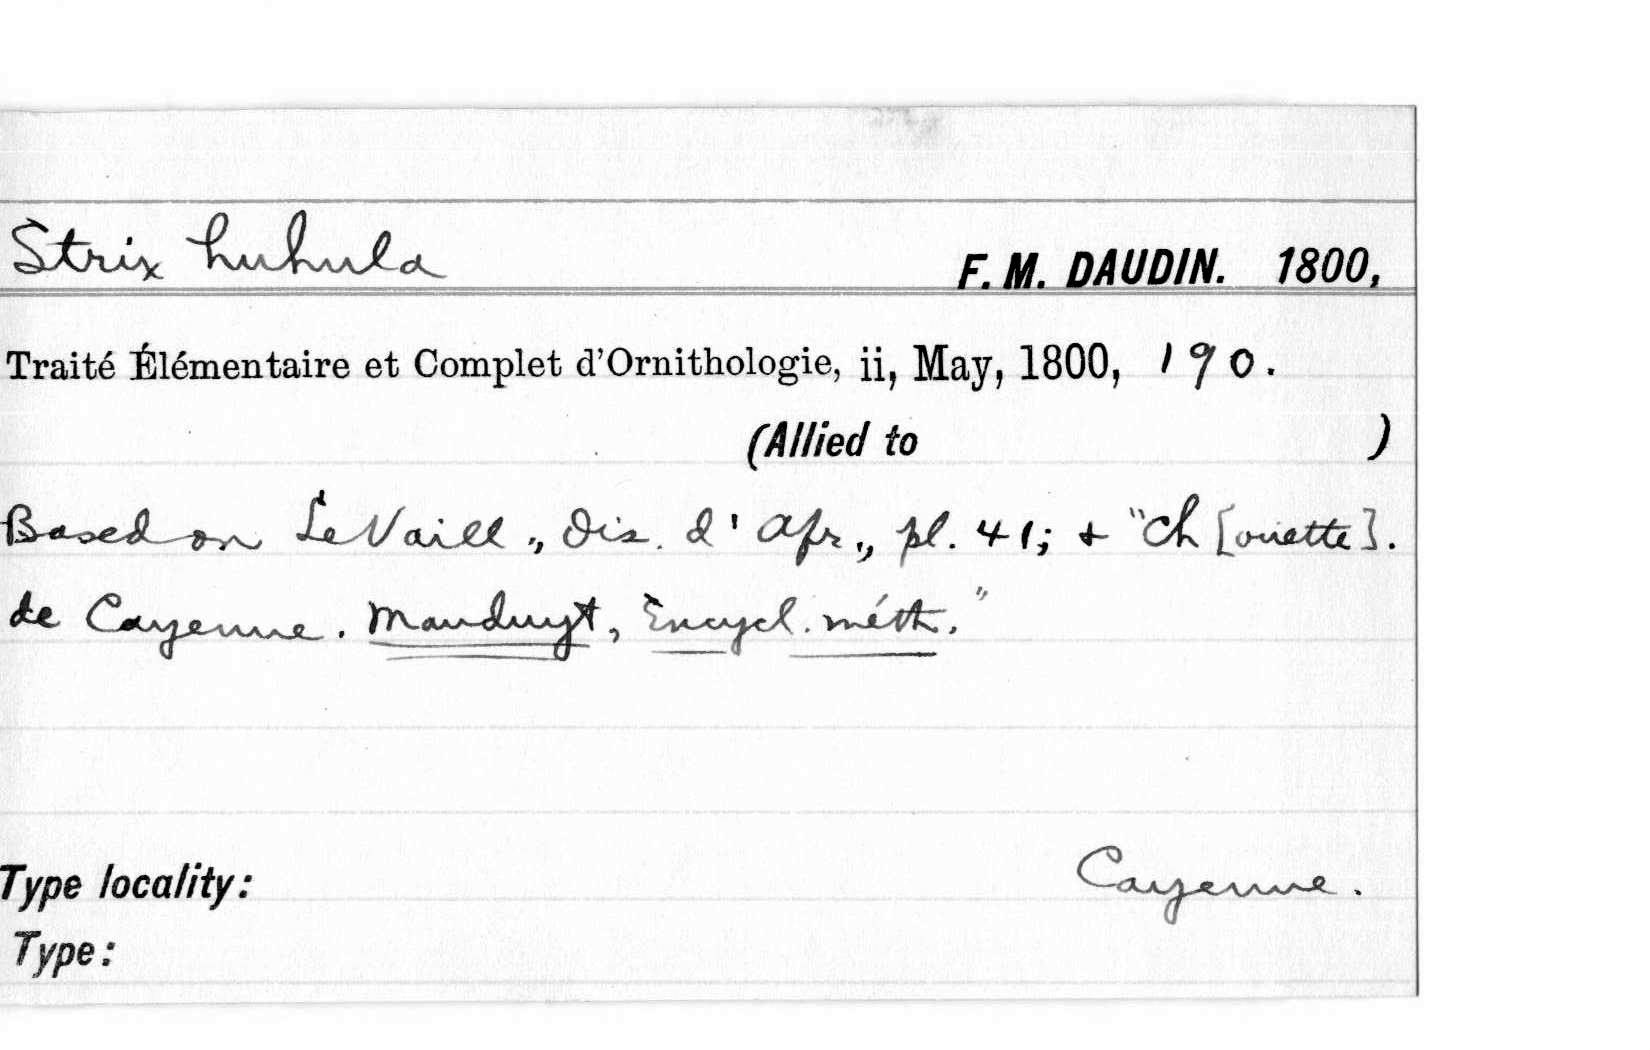 Strix huhula
F. M. DAUDIN. 1800,
Traité Élémentaire et Complet d'Ornithologie, ii, May, 1800, 190.
(Allied to )
Based on Le Vaill., Ois. d'Afr., pl. 41; + "Ch [ouette].
de Cayenne. Mauduyt, Encycl. méth."
Type locality: Cayenne.
Type: